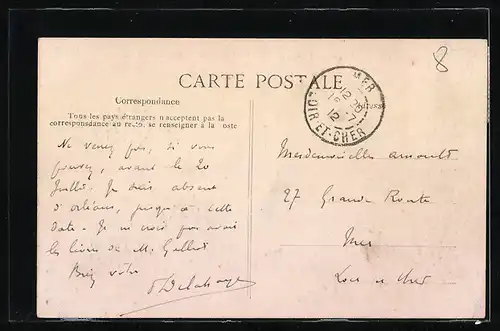 8
CARTE POSTALE
Correspondance
Tous les pays étrangers n'acceptent pas la
correspondance au recto, se renseigner à la Poste
MER
12 30
7
12
LOIR-ET-CHER
Adresse
Ne venez pas, si vous
pouvez, avant le 20
Juillet. Je serai absent
d'orléans, jusqu'à cette
date. Je ne crois pas avoir
les livres de M.
Bien votre
Delahaye
Mesdemoiselles arnoult
27 Grande Route
Mer
Loir et Cher